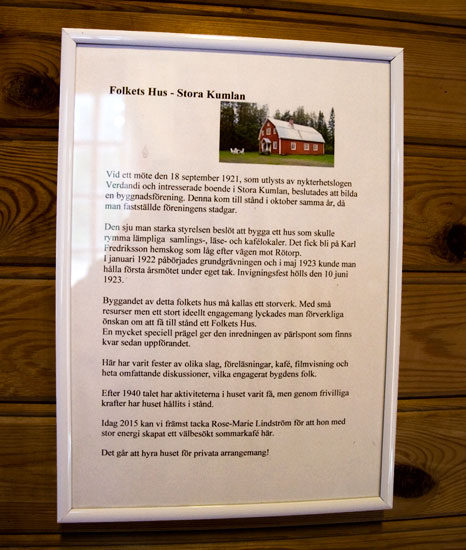 Folkets Hus - Stora Kumlan
Vid ett möte den 18 september 1921, som utlysts av nykterhetslogen
Verdandi och intresserade boende i Stora Kumlan, beslutades att bilda
en byggnadsförening. Denna kom till stånd i oktober samma år, då
man fastställde föreningens stadgar.
Den sju man starka styrelsen beslöt att bygga ett hus som skulle
rymma lämpliga samlings-, läse- och kafélokaler. Det fick bli på Karl
Fredriksson hemskog som låg efter vägen mot Rötorp.
I januari 1922 påbörjades grundgrävningen och i maj 1923 kunde man
hålla första årsmötet under eget tak. Invigningsfest hölls den 10 juni
1923.
Byggandet av detta folkets hus må kallas ett storverk. Med små
resurser men ett stort ideellt engagemang lyckades man förverkliga
önskan om att få till stånd ett Folkets Hus.
En mycket speciell prägel ger den inredning av pärlspont som finns
kvar sedan uppförandet.
Här har varit fester av olika slag, föreläsningar, kafé, filmvisning och
heta omfattande diskussioner, vilka engagerat bygdens folk.
Efter 1940 talet har aktiviteterna i huset varit få, men genom frivilliga
krafter har huset hållits i stånd.
Idag 2015 kan vi främst tacka Rose-Marie Lindström för att hon med
stor energi skapat ett välbesökt sommarkafé här.
Det går att hyra huset för privata arrangemang!